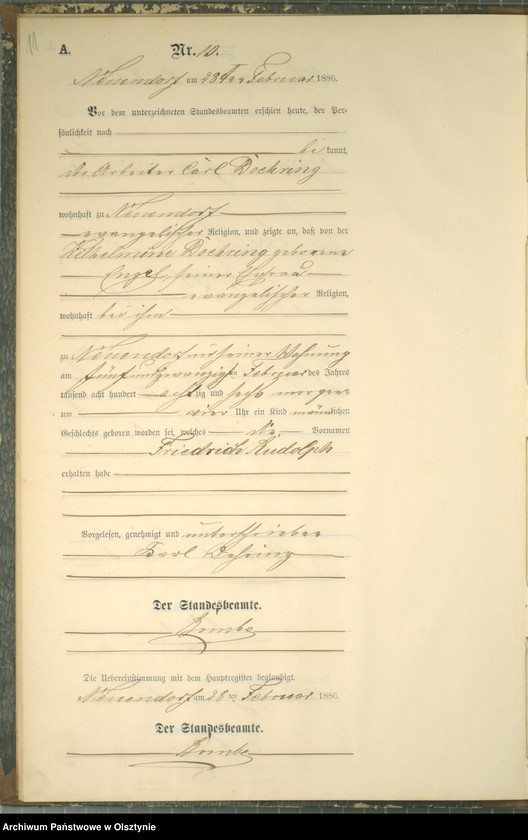 11
A.
Nr. 10.
Neuendorf am 28ten Februar 1886.
Vor dem unterzeichneten Standesbeamten erschien heute, der Per-
sönlichkeit nach
be kannt,
der Arbeiter Carl Doehring
wohnhaft zu Neuendorf
evangelischer Religion, und zeigte an, daß von der
Wilhelmine Doehring geborene
Engel, seiner Ehefrau
evangelischer Religion,
wohnhaft bei ihm
zu Neuendorf in seiner Wohnung
am fünfundzwanzigsten Februar des Jahres
tausend acht hundert achtzig und sechs morgens
um vier Uhr ein Kind männlichen
Geschlechts geboren worden sei, welches die Vornamen
Friedrich Rudolph
erhalten habe
Vorgelesen, genehmigt und unterschrieben
Karl Dehring
Der Standesbeamte.
Die Uebereinstimmung mit dem Hauptregister beglaubigt.
Neuendorf am 28ten Februar 1886.
Der Standesbeamte.
Archiwum Państwowe w Olsztynie